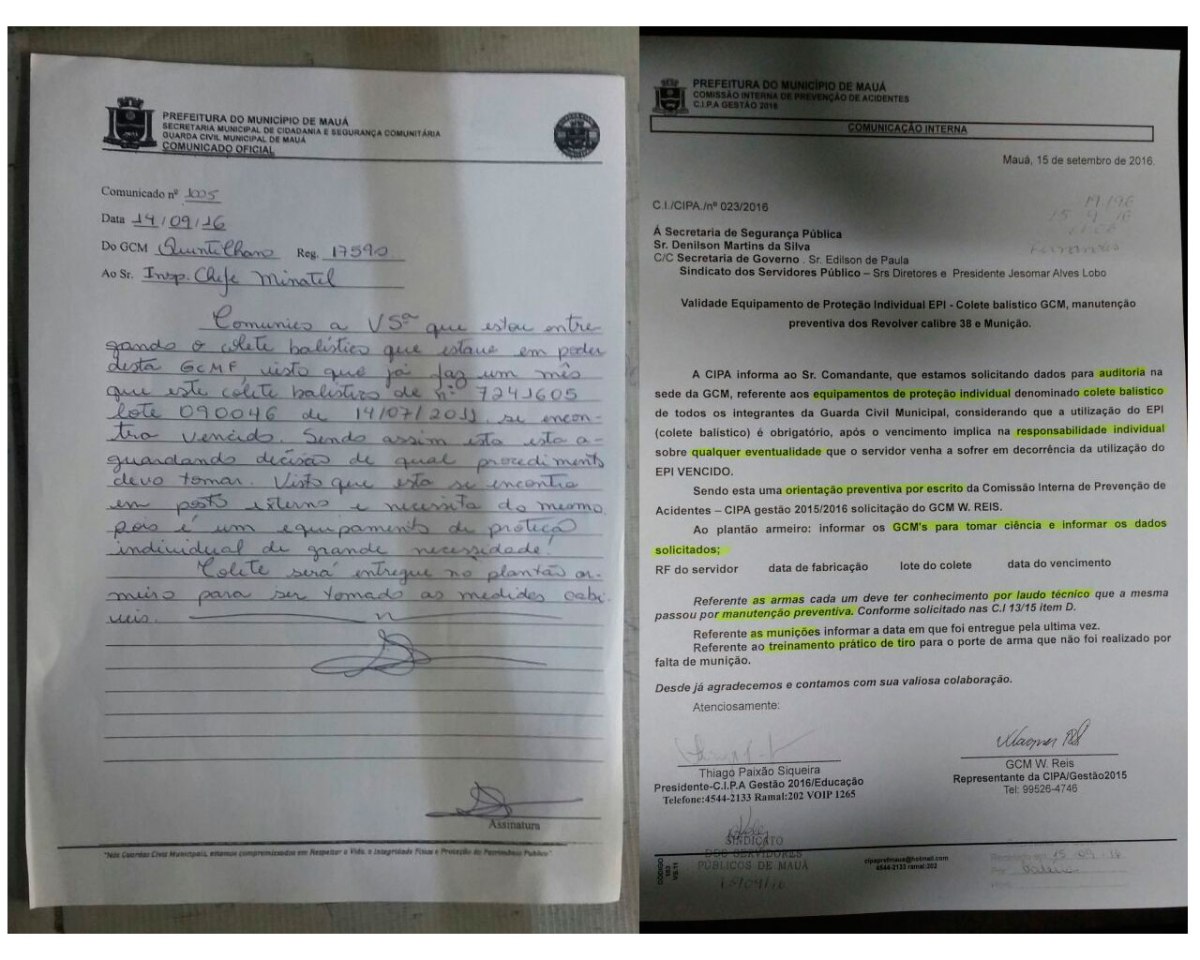 PREFEITURA DO MUNICÍPIO DE MAUÁ
SECRETARIA MUNICIPAL DE CIDADANIA E SEGURANÇA COMUNITÁRIA
GUARDA CIVIL MUNICIPAL DE MAUÁ
COMUNICADO OFICIAL
Comunicado nº 1005
Data 14/09/16
Do GCM Quintilhano Reg. 17590
Ao Sr. Insp. Chefe Minatel
Comunico a VSª que estou entre-
gando o colete balístico que estava em poder
desta GCMF, visto que já faz um mês
que este colete balístico de nº 7241605
lote 090046 de 14/07/2011, se encon-
tra vencido. Sendo assim esta esta a-
guardando decisão de qual procedimento
devo tomar. Visto que esta se encontra
em posto externo e necessita do mesmo,
pois é um equipamento de proteção
individual de grande necessidade.
Colete será entregue no plantão ar-
meiro para ser tomado as medidas cabí-
veis.
Assinatura
"Nós Guardas Civis Municipais, estamos compromissados em Respeitar a Vida, a Integridade Física e Proteção do Patrimônio Público"
PREFEITURA DO MUNICÍPIO DE MAUÁ
COMISSÃO INTERNA DE PREVENÇÃO DE ACIDENTES
C.I.P.A GESTÃO 2016
COMUNICAÇÃO INTERNA
Mauá, 15 de setembro de 2016.
C.I./CIPA./nº 023/2016
Á Secretaria de Segurança Pública
Sr. Denilson Martins da Silva
C/C Secretaria de Governo . Sr. Edilson de Paula
Sindicato dos Servidores Público – Srs Diretores e Presidente Jesomar Alves Lobo
Validade Equipamento de Proteção Individual EPI - Colete balístico GCM, manutenção
preventiva dos Revolver calibre 38 e Munição.
A CIPA informa ao Sr. Comandante, que estamos solicitando dados para auditoria na
sede da GCM, referente aos equipamentos de proteção individual denominado colete balístico
de todos os integrantes da Guarda Civil Municipal, considerando que a utilização do EPI
(colete balístico) é obrigatório, após o vencimento implica na responsabilidade individual
sobre qualquer eventualidade que o servidor venha a sofrer em decorrência da utilização do
EPI VENCIDO.
Sendo esta uma orientação preventiva por escrito da Comissão Interna de Prevenção de
Acidentes – CIPA gestão 2015/2016 solicitação do GCM W. REIS.
Ao plantão armeiro: informar os GCM's para tomar ciência e informar os dados
solicitados;
RF do servidor data de fabricação lote do colete data do vencimento
Referente as armas cada um deve ter conhecimento por laudo técnico que a mesma
passou por manutenção preventiva. Conforme solicitado nas C.I 13/15 item D.
Referente as munições informar a data em que foi entregue pela ultima vez.
Referente ao treinamento prático de tiro para o porte de arma que não foi realizado por
falta de munição.
Desde já agradecemos e contamos com sua valiosa colaboração.
Atenciosamente:
Thiago Paixão Siqueira
Presidente-C.I.P.A Gestão 2016/Educação
Telefone:4544-2133 Ramal:202 VOIP 1265
Wagner Reis
GCM W. Reis
Representante da CIPA/Gestão2015
Tel: 99526-4746
SINDICATO
DOS SERVIDORES
PÚBLICOS DE MAUÁ
15/09/16
cipaprefmaua@hotmail.com
4544-2133 ramal:202